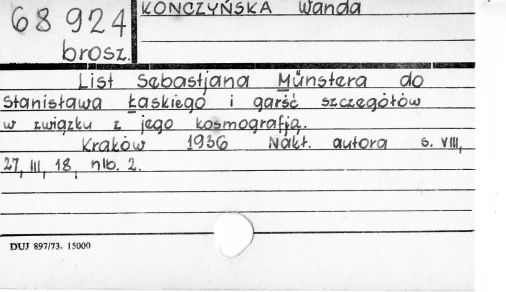 68924
brosz.
KONCZYŃSKA Wanda
List Sebastjana Münstera do
Stanisława Łaskiego i garść szczegółów
w związku z jego kosmografją.
Kraków 1936 Nakł. autora s. VIII,
27, III, 18, nlb. 2.
DUJ 897/73. 15000